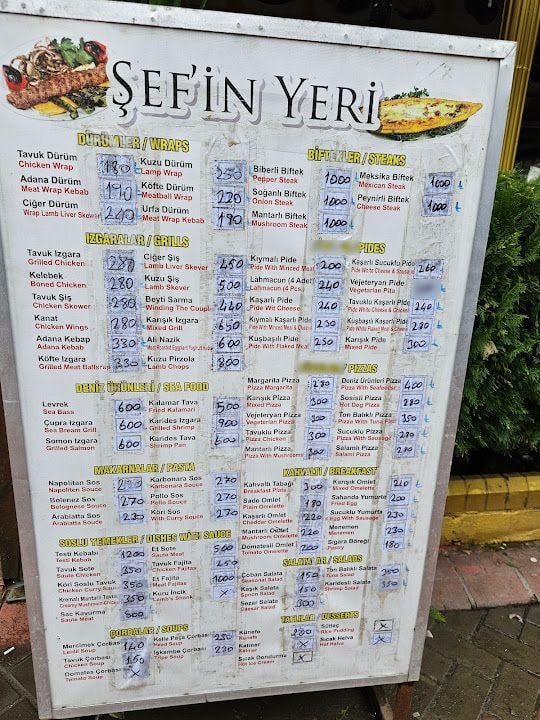 ŞEF'İN YERİ
DÜRÜMLER / WRAPS
Tavuk Dürüm 180
Chicken Wrap
Adana Dürüm 190
Meat Wrap Kebab
Ciğer Dürüm 240
Wrap Lamb Liver Skewer
Kuzu Dürüm 250
Lamp Wrap
Köfte Dürüm 220
Meatball Wrap
Urfa Dürüm 190
Meat Wrap Kebab
BİFTEKLER / STEAKS
Biberli Biftek 1000
Pepper Steak
Soğanlı Biftek 1000
Onion Steak
Mantarlı Biftek 1000
Mushroom Steak
Meksika Biftek 1000
Mexican Steak
Peynirli Biftek 1000
Cheese Steak
IZGARALAR / GRILLS
Tavuk Izgara 280
Grilled Chicken
Kelebek 280
Boned Chicken
Tavuk Şiş 280
Chicken Skewer
Kanat 280
Chicken Wings
Adana Kebap 330
Adana Kebab
Köfte Izgara 330
Grilled Meat Ballkrap
Ciğer Şiş 450
Lamb Liver Skever
Kuzu Şiş 500
Lamb Skever
Beyti Sarma 440
Winding The Coupl
Karışık Izgara 650
Mixed Grill
Ali Nazik 600
Kuzu Pirzola 800
Lamb Chops
PIDES
Kıymalı Pide 200
Pide With Minced Meat
Lahmacun (4 Adet) 240
Lahmacun (4 Pcs)
Kaşarlı Pide 240
Pide Wit Cheese
Kıymalı Kaşarlı Pide 250
Pide With Minced Meat & Cheese
Kuşbaşılı Pide 250
Pide With Flaked Meat
Kaşarlı Sucuklu Pide 260
Pide White Cheese & Sausage
Vejeteryan Pide
Vegetarian Pita
Tavuklu Kaşarlı Pide 240
Pide White Cheese & Chicken
Kuşbaşılı Kaşarlı Pide 280
Pide With Flaked Meat & Cheese
Karışık Pide 300
Mixed Pide
DENİZ ÜRÜNLERİ / SEA FOOD
Levrek 600
Sea Bass
Çupra Izgara 600
Sea Bream Grill
Somon Izgara 600
Grilled Salmon
Kalamar Tava 500
Fried Kalamari
Karides Izgara 900
Grilled Shrimp
Karides Tava 600
Shrimp Pan
/ PIZZAS
Margarita Pizza 280
Pizza Margarita
Karışık Pizza 300
Mixed Pizza
Vejeteryan Pizza 300
Vegeterian Pizza
Tavuklu Pizza 300
Pizza Chicken
Mantarlı Pizza 300
Pizza With Mushroom
Deniz Ürünleri Pizza 400
Pizza With Seafoods
Sosisli Pizza 280
Hot Dog Pizza
Ton Balıklı Pizza 350
Pizza With Tuna Fish
Sucuklu Pizza 280
Pizza With Sausage
Salamlı Pizza 280
Salami Pizza
MAKARNALAR / PASTA
Napolitan Sos
Napoliten Sauce
Bolenez Sos 270
Bolognese Sauce
Arabiatta Sos 230
Arabiatta Sauce
Karbonara Sos 270
Karbonara Souce
Pollo Sos 270
Pollo Sauce
Köri Sos 270
With Curry Sauce
KAHVALTI / BREAKFAST
Kahvaltı Tabağı 300
Breakfast Plate
Sade Omlet 180
Plain Omelett
Kaşarlı Omlet 220
Cheddar Omelette
Mantarlı Omlet 230
Mushroom Omelette
Domatesli Omlet 200
Tomato Omelette
Karışık Omlet 240
Mixed Omelette
Sahanda Yumurta 200
Egg
Sucuklu Yumurta 230
Egg With Sausage
Menemen 230
Menemen
Sigara Böreği 180
Pastry
SOSLU YEMEKLER / DISHES WITH SAUCE
Testi Kebabı 1200
Testi Kebab
Tavuk Sote 350
Saute Chicken
Köri Soslu Tavuk 350
Chicken Curry Sauce
Kremalı Mantarlı Tavuk 350
Creamy Mushroom Chicken
Sac Kavurma 800
Saute Meat
Et Sote 500
Saute Meat
Tavuk Fajita 450
Chicken Fajitas
Et Fajita 1000
Meat Fajitas
Kuzu İncik X
Lamb's Shank
SALATALAR / SALADS
Çoban Salata 150
Seasonal Salad
Kaşık Salata 150
Spoon Salad
Sezar Salata 300
Caesar Salad
Ton Balıklı Salata 300
Tuna Salad
Karidesli Salata 350
Shrimp Salad
ÇORBALAR / SOUPS
Mercimek Çorbası 140
Lentil Soup
Tavuk Çorbası 150
Chicken Soup
Domates Çorbası X
Tomato Soup
Kelle Paça Çorbası 250
Head Soup
İşkembe Çorbası 230
Tripe Soup
TATLILAR / DESSERTS
Künefe 200
Kunefe
Katmer X
Katmer
Sıcak Dondurma X
Hot Ice Cream
Sütlaç
Rice Pudding
Sıcak Helva X
Hot Helva